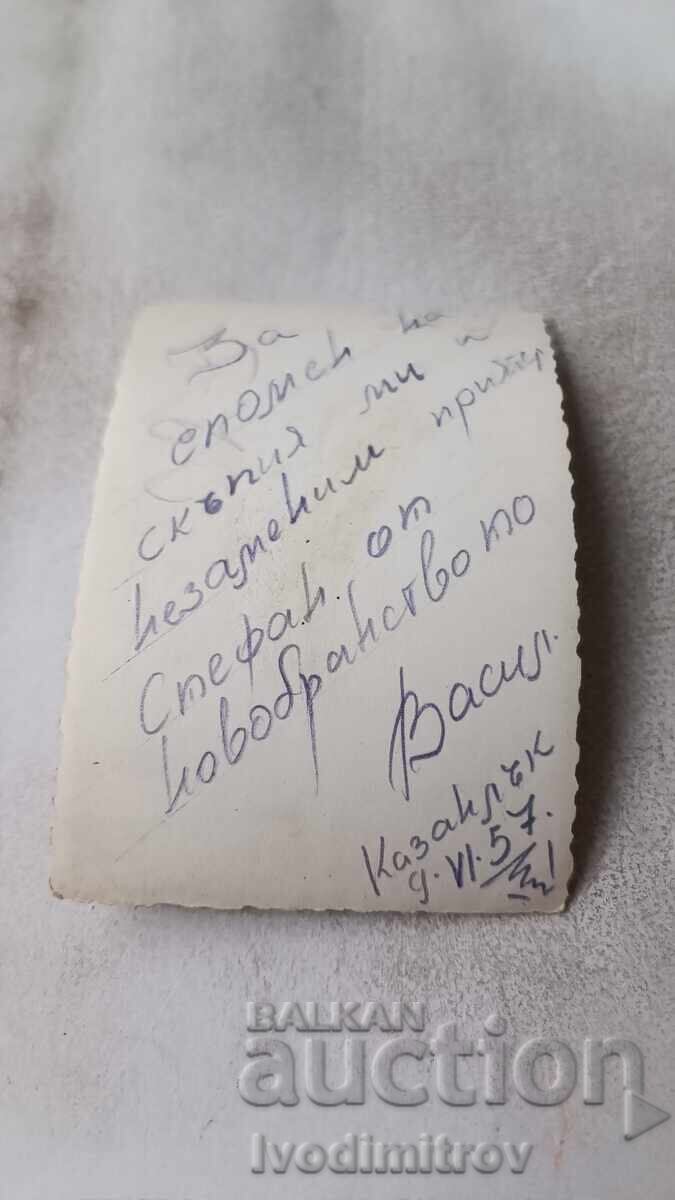 За
спомен на
скъпия ми и
незаменим
Стефан от
новобранството
Васил.
Казанлък
9. VI. 57.
BALKAN
auction
Ivodimitrov